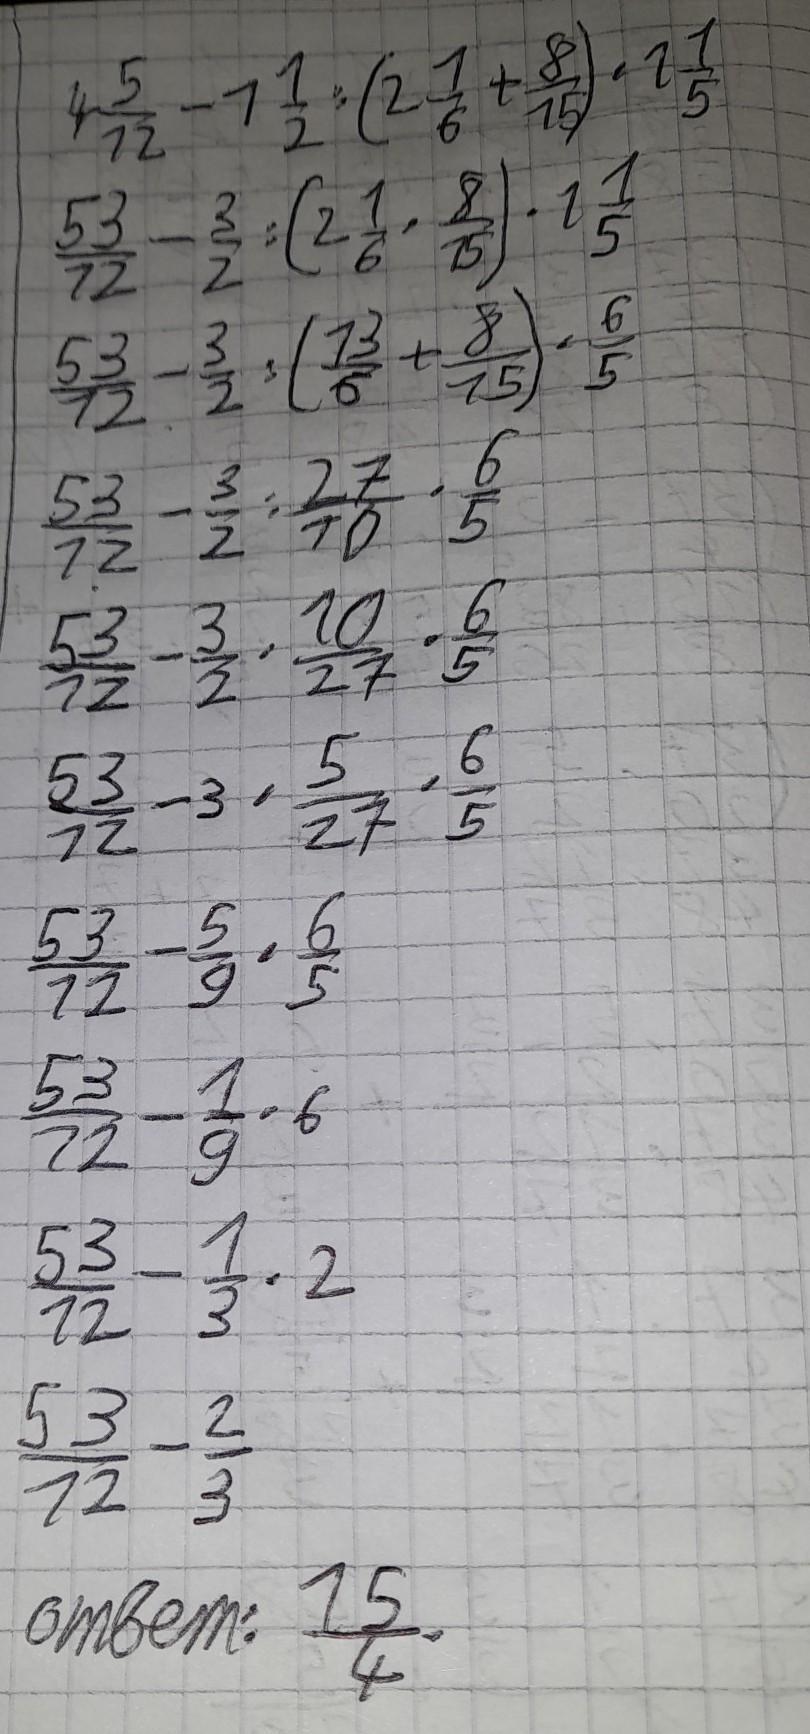 4 5/12 - 1 1/2 : (2 1/6 + 8/15) · 1 1/5
53/12 - 3/2 : (2 1/6 · 8/15) · 1 1/5
53/12 - 3/2 : (13/6 + 8/15) · 6/5
53/12 - 3/2 : 27/10 · 6/5
53/12 - 3/2 · 10/27 · 6/5
53/12 - 3 · 5/27 · 6/5
53/12 - 5/9 · 6/5
53/12 - 1/9 · 6
53/12 - 1/3 · 2
53/12 - 2/3
ответ: 15/4.